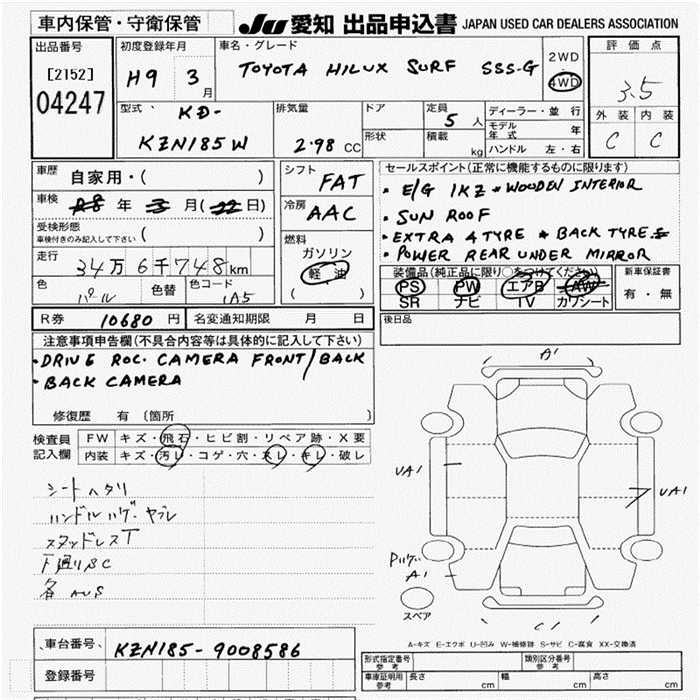 車内保管・守衛保管
JU 愛知 出品申込書 JAPAN USED CAR DEALERS ASSOCIATION
出品番号
[2152]
04247
初度登録年月
H9 3 月
車名・グレード
TOYOTA HILUX SURF SSS-G
2WD
4WD
評価点
3.5
外装 内装
C C
型式、
KD-
KZN185W
排気量
2.98 CC
ドア
形状
定員
5 人
積載
kg
ディーラー・並行
モデル年式 年
ハンドル 左・右
車歴
自家用・( )
車検
R8 年 3 月(22日)
受検形態
車検付きのみ記入して下さい ( )
走行
34万6千748km
色
パール
色替
色コード
1A5
シフト
FAT
冷房
AAC
燃料
ガソリン
軽油
( )
セールスポイント(正常に機能するものに限ります)
・E/G 1KZ * WOODEN INTERIOR
・SUN ROOF
・EXTRA 4 TYRE * BACK TYRE
・POWER REAR UNDER MIRROR
装備品(純正品に限り○をつけてください)
PS PW エアB AW
SR ナビ TV カワシート
新車保証書
有・無
R券 10680 円
名変通知期限 月 日
後日品
注意事項申告欄(不具合内容等は具体的に記入して下さい)
・DRIVE ROC. CAMERA FRONT/BACK
・BACK CAMERA
修復歴 有 〔箇所 〕
検査員
記入欄
FW キズ・飛石・ヒビ割・リペア跡・X要
内装 キズ・汚レ・コゲ・穴・スレ・キレ・破レ
シートヘタリ
ハンドルハゲ・ヤブレ
スタッドレスT
下廻りSC
A1
UA1
UA1
A1
C1
スペア
A-キズ E-エクボ U-凹み W-補修跡 S-サビ C-腐食 XX-交換済
車台番号
KZN185-9008586
登録番号
形式指定番号
参考
類別区分番号
参考
車庫証明用
参考
長さ cm
幅 cm
高さ cm